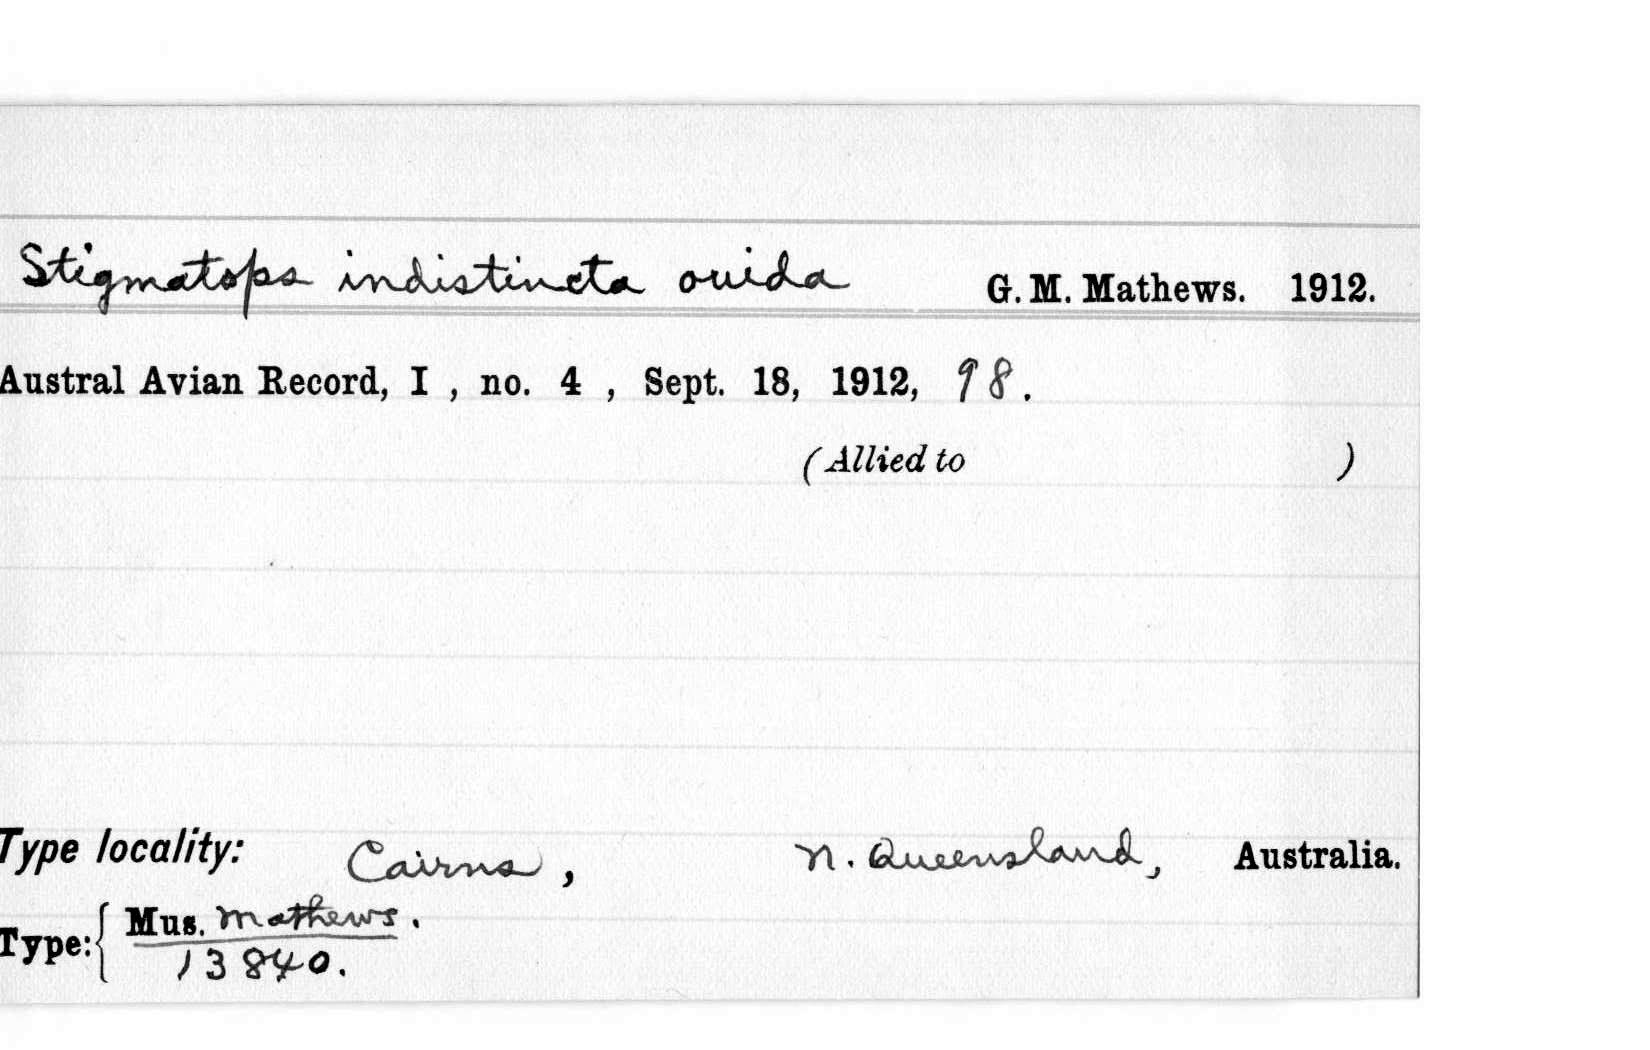 Stigmatops indistincta ouida G. M. Mathews. 1912.
Austral Avian Record, I , no. 4 , Sept. 18, 1912, 98.
(Allied to )
Type locality: Cairns, N. Queensland, Australia.
Type: { Mus. Mathews.
13840.